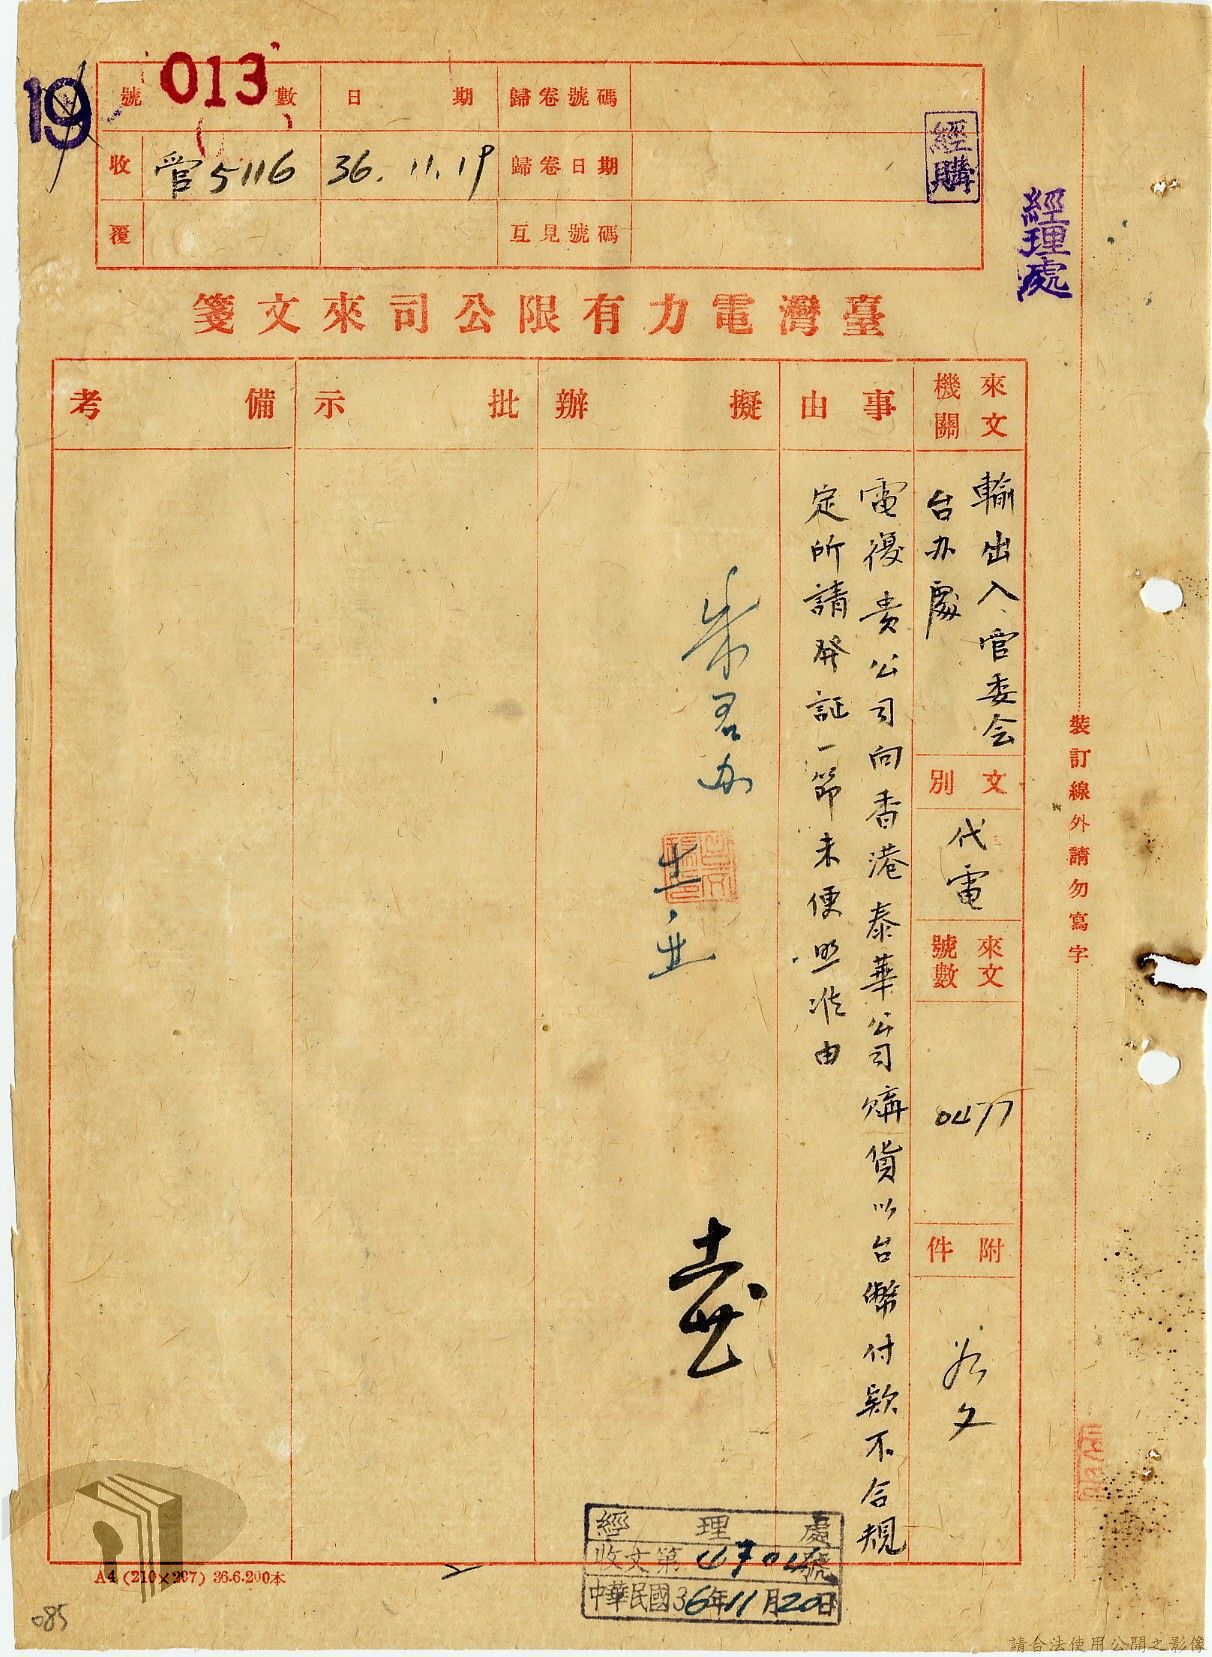 19
013
號 數
日 期
歸卷號碼
收
管5116
36.11.19
歸卷日期
覆
互見號碼
經購
經理處
臺灣電力有限公司來文箋
來文機關
輸出入管委会
台办處
文別
代電
來文號數
0477
附件
事由
電復貴公司向香港泰華公司購貨以台幣付款不合規
定所請發証一節未便照准由
擬辦
批示
備考
裝訂線外請勿寫字
經理處
收文第4704號
中華民國36年11月20日
A4 (210×297) 36.6.200本
085
請合法使用公開之影像